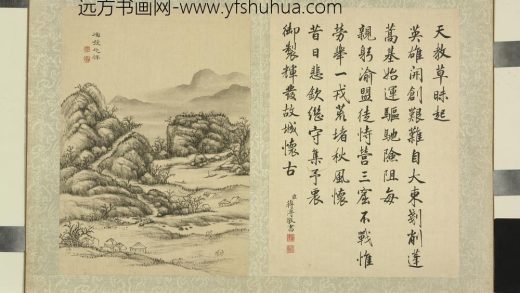 远方书画网-www.yfshuhua.com
天教草昧起
英雄开创艱難自大東剗削蓬
蒿基始運驅馳險阻每
親躬渝盟徒恃營三窟不戰惟
勞舉一戎荒堵秋風懷
昔日悲欽繼守集予衷
御製輝發故城懷古
書